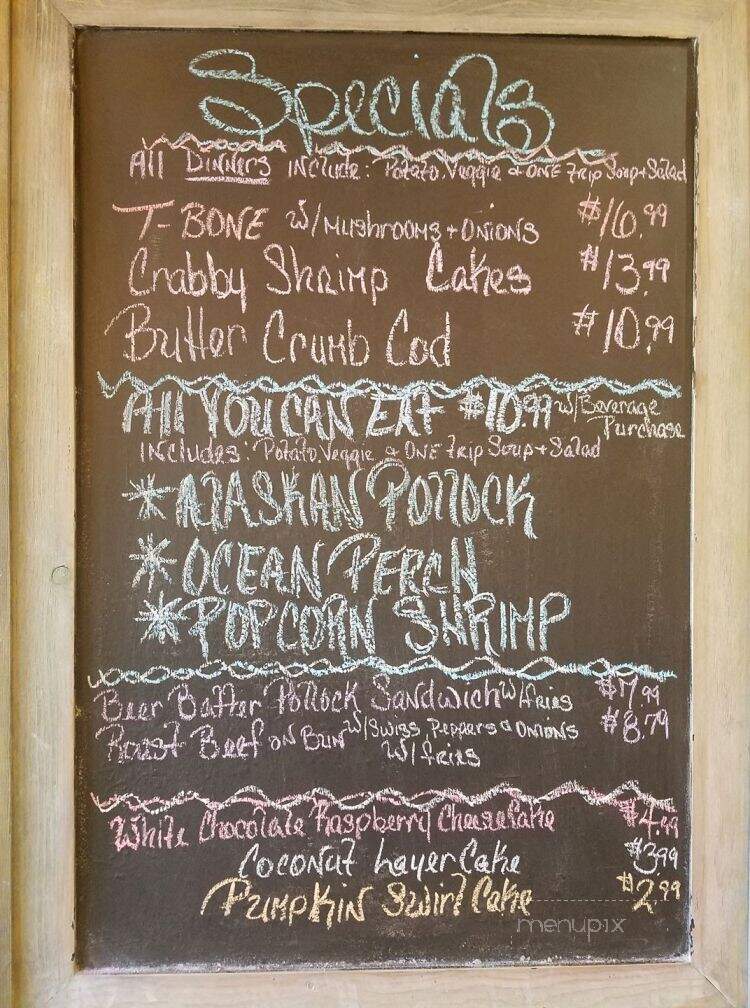 Specials
All Dinners Include: Potato, Veggie & ONE Trip Soup + Salad
T-BONE w/ Mushrooms + Onions $16.99
Crabby Shrimp Cakes $13.99
Butter Crumb Cod $10.99
All YOU CAN EAT $10.99 w/ Beverage Purchase
Includes: Potato, Veggie & ONE Trip Soup + Salad
*ALASKAN POLLOCK
*OCEAN PERCH
*POPCORN SHRIMP
Beer Batter Pollock Sandwich w/ fries $7.99
Roast Beef on Bun w/ Swiss, Peppers & Onions $8.79
w/ fries
White Chocolate Raspberry Cheesecake $4.99
Coconut Layer Cake $3.99
Pumpkin Swirl Cake $2.99
menupix